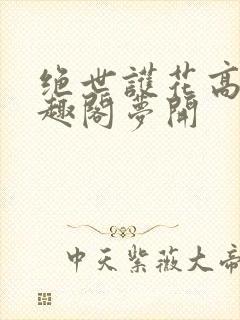 绝世護花高
趣閣夢開
中天紫薇大帝